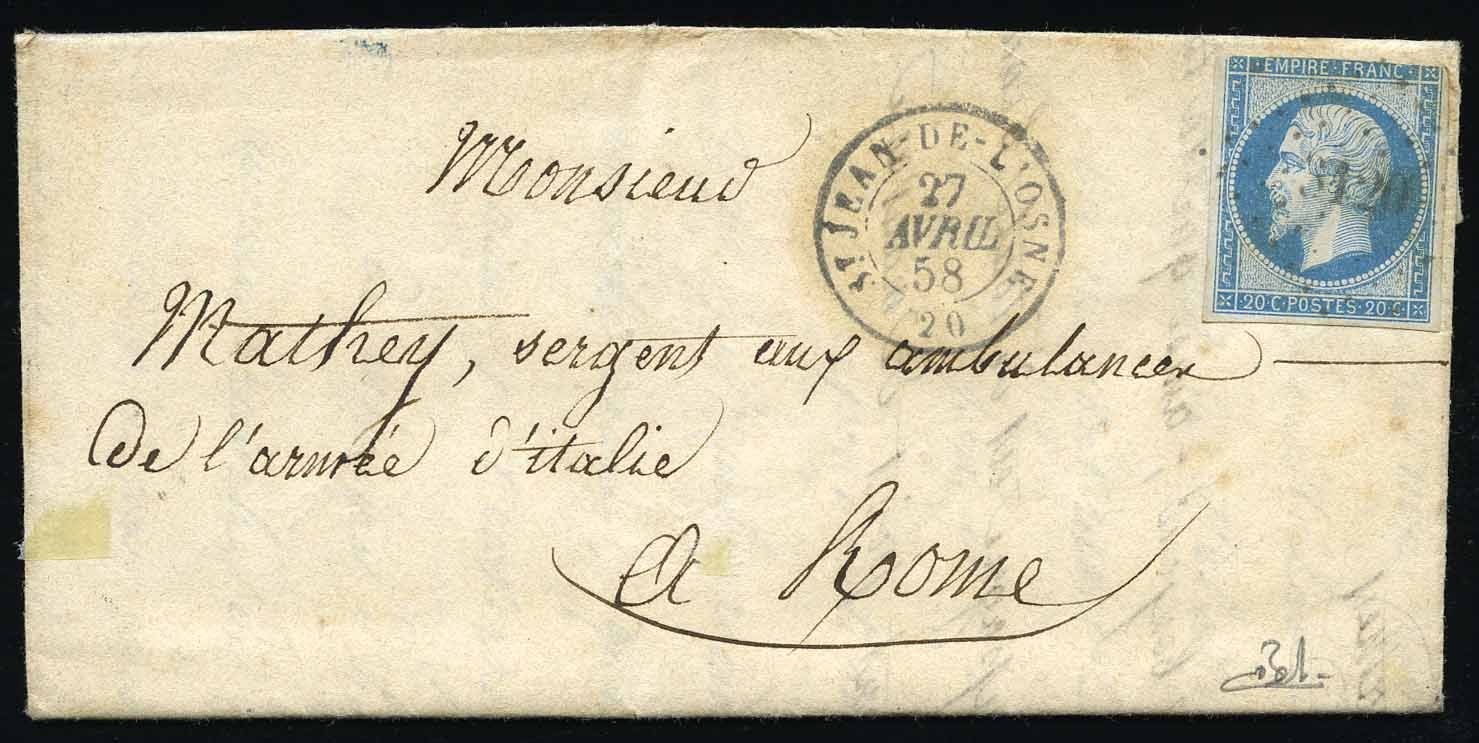 EMPIRE · FRANC ·
20 · C · POSTES · 20 · C ·
ST JEAN-DE-L'OSNE
27
AVRIL
58
20
Monsieur
Mathey, sergent aux ambulances
de l'armée d'italie
a Rome